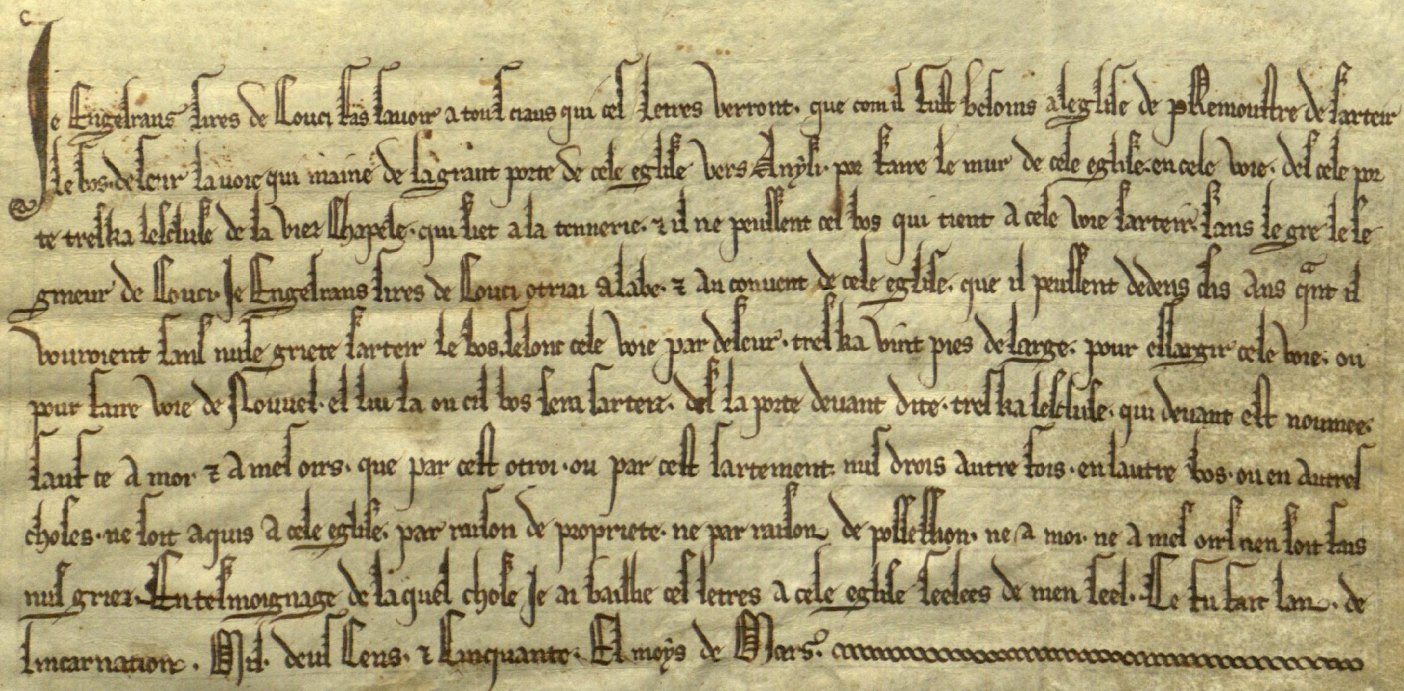 Je Engelrans sires de Couci fas savoir a tous ciaus qui ces letres verront. que com il fust besoins a leglise de pRemoustre de sarteir
le bos. deseur la voie qui maine de la grant porte de cele eglise vers Anysi. por faire le mur de cele eglise. en cele voie. des cele por
te treska lescluse de la viez Chapele. qui siet a la tennerie. & il ne peussent cel bos qui tient a cele voie sarteir. sans le gre le se
gneur de Couci. Je Engelrans sires de Couci otriai a labe. & au couvent de cele eglise. que il peussent dedens dis ans qant il
vouroient sans nule griete sarteir le bos. selonc cele voie par deseur. treska vint pies de large. pour eslargir cele voie. ou
pour faire voie de Nouvel. el liu la ou cil bos sera sarteiz. des la porte devant dite. treska lescluse. qui devant est noumee.
sauf ce a moi. & a mes oirs. que par cest otroi. ou par cest sartement. nus drois autre fois. en lautre bos. ou en autres
choses. ne soit aquis a cele eglise. par raison de propriete. ne par raison de possession. ne a moi. ne a mes oirs nen soit fais
nus griez. En tesmoignage de laquel chose Je ai baillie ces letres a cele eglise seelees de men seel. Ce fu fait lan. de
lincarnation. Mil. deus Cens. & Cinquante. El moys de Mars.